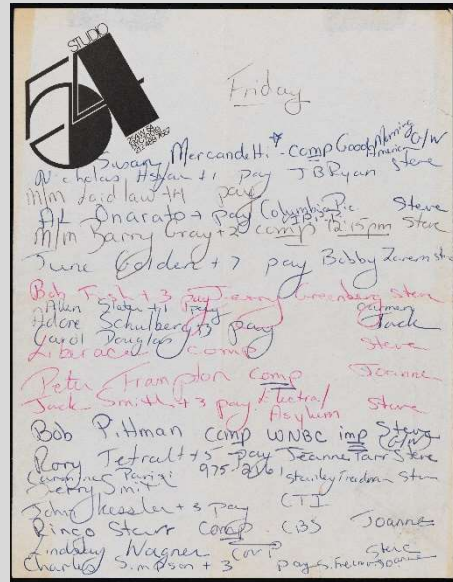 STUDIO
54
Friday
Susan Mercandetti - Comp Good Morning America G/W
Nicholas +1 pay JB Ryan Steve
M/M Laidlaw +4 pay
Al Onorato + pay Columbia Pic Steve
M/M Barry Gray +2 comp 12:15pm Steve
June Golden + 7 pay Bobby Zarem Steve
Bob + 3 pay Jerry Greenberg Steve
Allen +1 pay
Adore Schulberg +3 pay Jack
Carol Douglas
Liberace comp Steve
Peter Frampton Comp Joanne
Jack Smith + 3 pay Electra/ Steve
Asylum
Bob Pittman comp WNBC imp Steve G/W
Rory Tetrault +5 pay Jeanne Steve
Carmine 975-
Jerry Smith Stanley
John Kessler + 3 pay CTI
Ringo Starr Comp CBS Joanne
Lindsay Wagner Comp Steve
Charles Simpson + 3 pay Joanne